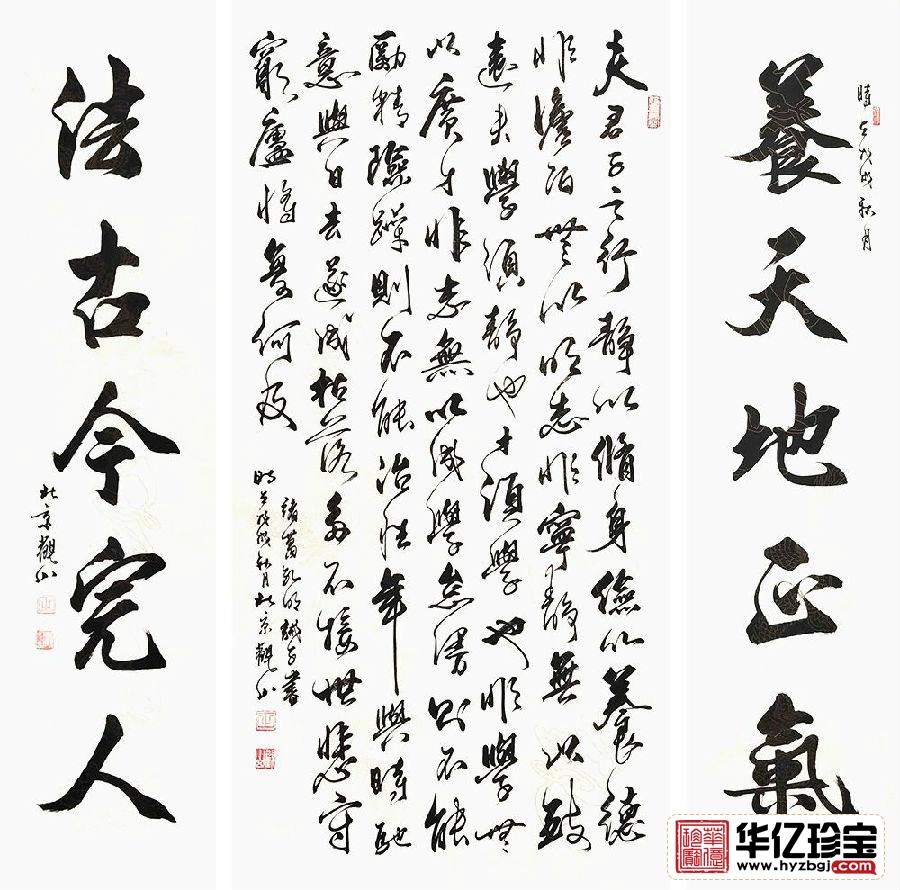 時在戊戌秋月
養天地正氣
夫君子之行靜以脩身儉以養德
非澹泊無以明志非寧靜無以致
遠夫學須靜也才須學也非學無
以廣才非志無以成學怠慢則不能
勵精險躁則不能治性年與時馳
意與日去遂成枯落多不接世悲守
窮廬將復何及
諸葛孔明誡子書
時在戊戌秋月北京觀山
法古今完人
北京觀山
華億珍寶
华亿珍宝
www.hyzbgj.com